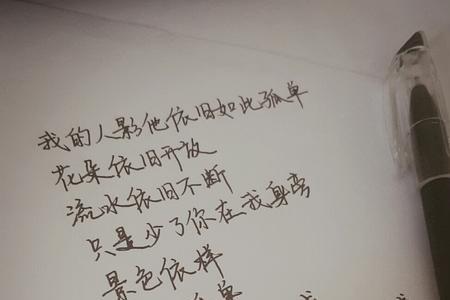 我的人影他依旧如此孤单
花朵依旧开放
流水依旧不断
只是少了你在我身旁
景色依样
单